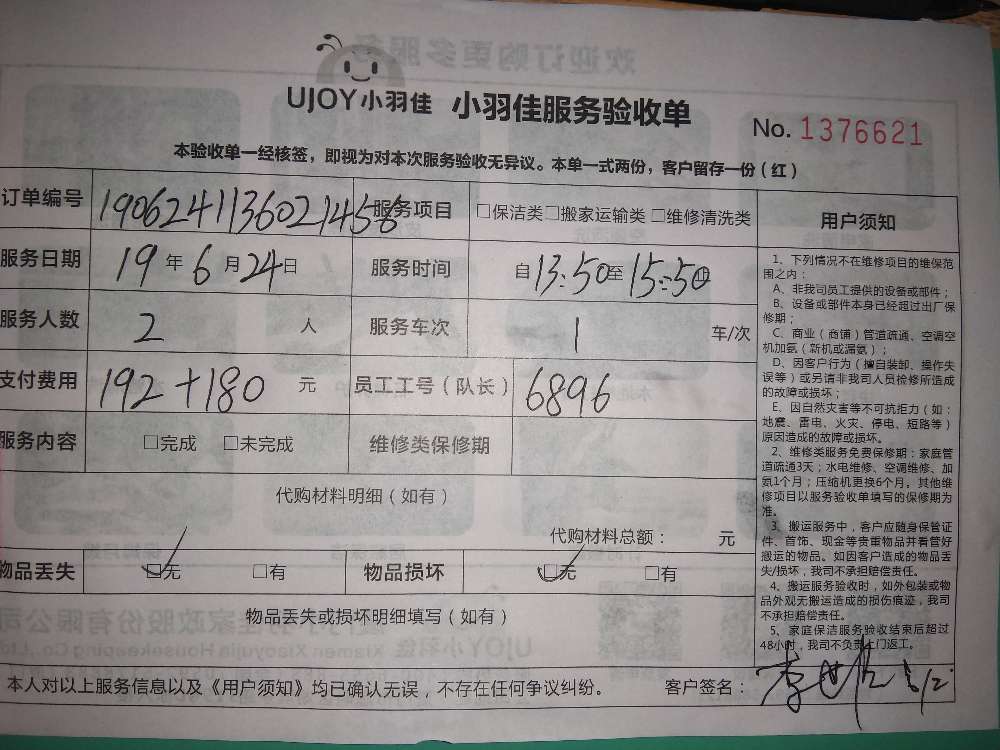 UJOY小羽佳 小羽佳服务验收单
No. 1376621
本验收单一经核签，即视为对本次服务验收无异议。本单一式两份，客户留存一份（红）
订单编号 1906241136021458 服务项目 □保洁类□搬家运输类 □维修清洗类
服务日期 19年6月24日 服务时间 自13:50至15:50止
服务人数 2 人 服务车次 1 车/次
支付费用 192+180 元 员工工号（队长） 6896
服务内容 □完成 □未完成 维修类保修期
代购材料明细（如有）
代购材料总额： 元
物品丢失 □无 □有 物品损坏 □无 □有
物品丢失或损坏明细填写（如有）
本人对以上服务信息以及《用户须知》均已确认无误，不存在任何争议纠纷。 客户签名：
用户须知
1、下列情况不在维修项目的维保范
围之内：
A、非我司员工提供的设备或部件；
B、设备或部件本身已经超过出厂保
修期；
C、商业（商铺）管道疏通、空调空
机加氨（新机或漏氨）；
D、因客户行为（擅自装卸、操作失
误等）或另请非我司人员检修所造成
的故障或损坏；
E、因自然灾害等不可抗拒力（如：
地震、雷电、火灾、停电、短路等）
原因造成的故障或损坏。
2、维修类服务免费保修期：家庭管
道疏通3天；水电维修、空调维修、加
氨1个月；压缩机更换6个月。其他维
修项目以服务验收单填写的保修期为
准。
3、搬运服务中，客户应随身保管证
件、首饰、现金等贵重物品并看管好
搬运的物品。如因客户造成的物品丢
失/损坏，我司不承担赔偿责任。
4、搬运服务验收时，如外包装或物
品外观无搬运造成的损伤痕迹，我司
不承担赔偿责任。
5、家庭保洁服务验收结束后超过
48小时，我司不负责上门返工。